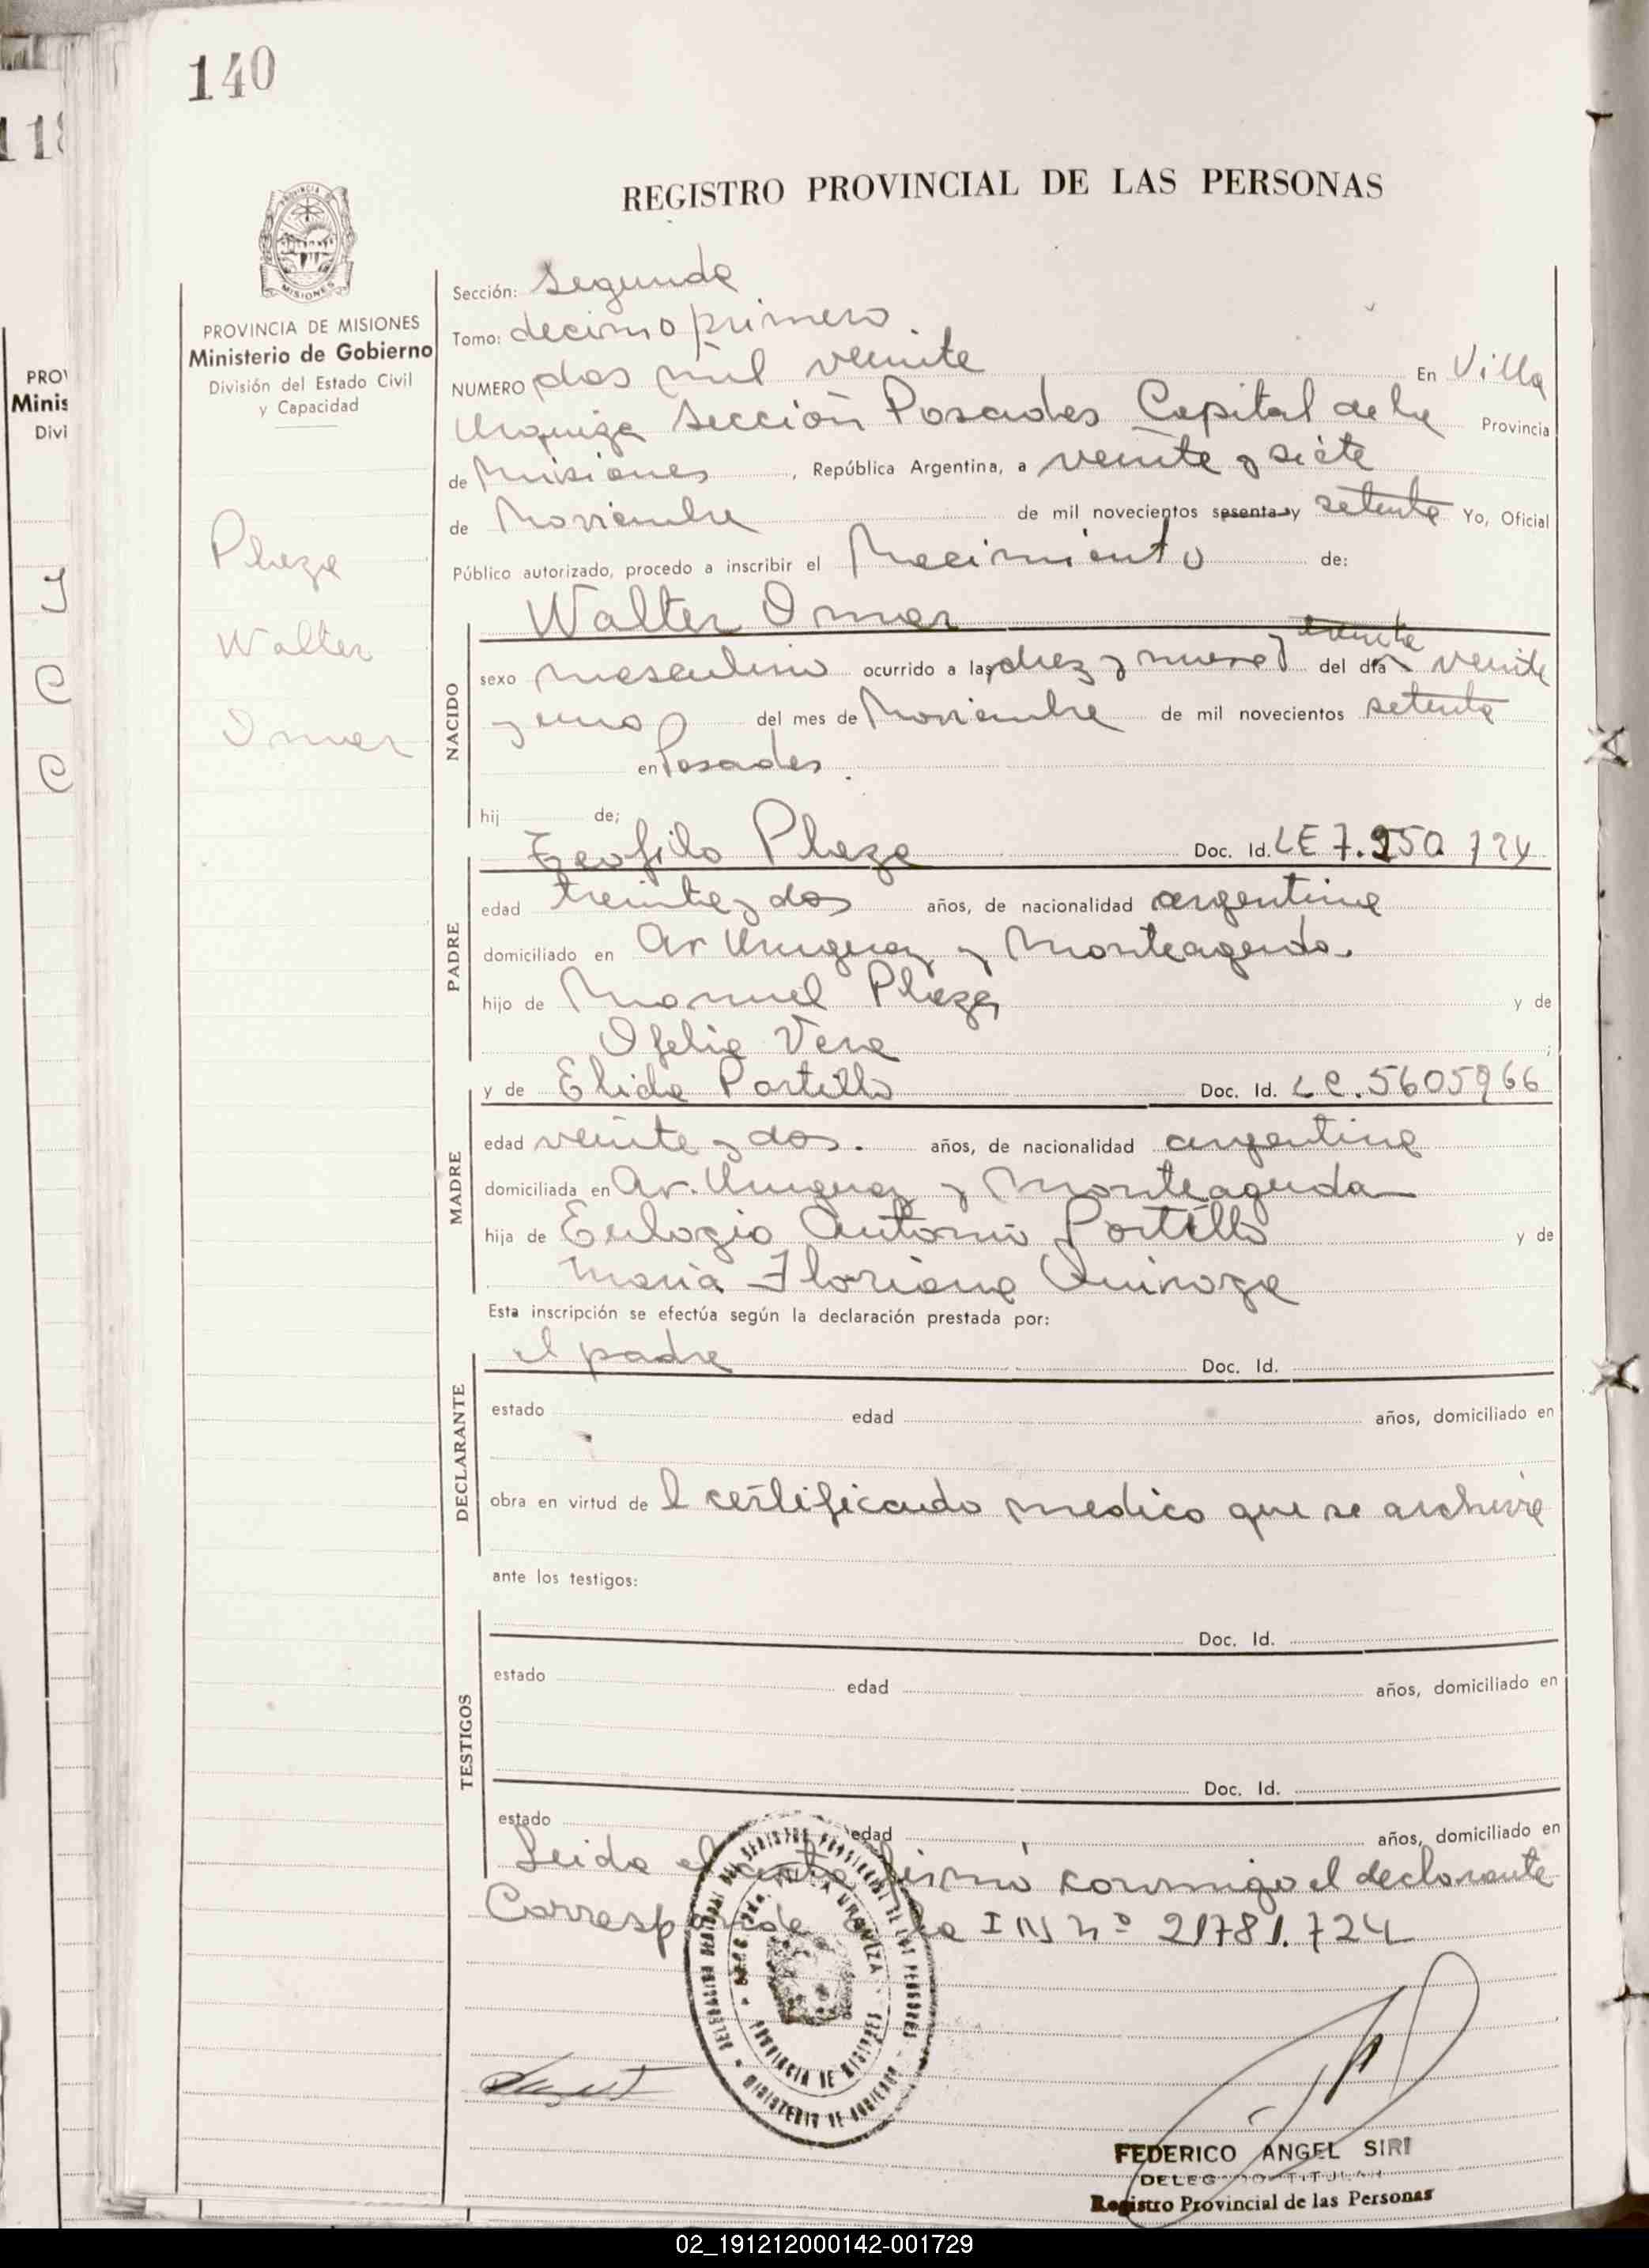 140
118
REGISTRO PROVINCIAL DE LAS PERSONAS
PROVINCIA DE MISIONES
Ministerio de Gobierno
División del Estado Civil
y Capacidad
Plaza
Walter
Omar
Sección: Segunda
Tomo: decimo primero.
NUMERO dos mil veinte En Villa
Urquiza Sección Posadas Capital de la Provincia
de Misiones, República Argentina, a veinte y siete
de Noviembre de mil novecientos sesenta y setenta Yo, Oficial
Público autorizado, procedo a inscribir el Nacimiento de:
Walter Omar
NACIDO
veinte
sexo masculino ocurrido a las diez y nueve del día veinte
y uno del mes de Noviembre de mil novecientos setenta
en Posadas.
hij de;
PADRE
Teofilo Plaza Doc. Id. LE 7.950.724
edad treinta y dos años, de nacionalidad argentina
domiciliado en Av Uruguay y Monteagudo.
hijo de Manuel Plaza y de
Ofelia Vera ;
MADRE
y de Elida Portillo Doc. Id. LC. 5605966
edad veinte y dos. años, de nacionalidad argentina
domiciliada en Av. Uruguay y Monteagudo
hija de Eulogio Antonio Portillo y de
Maria Floriana Quiroga
Esta inscripción se efectúa según la declaración prestada por:
DECLARANTE
el padre Doc. Id.
estado edad años, domiciliado en
obra en virtud de l certificado medico que se archiva
ante los testigos:
TESTIGOS
Doc. Id.
estado edad años, domiciliado en
Doc. Id.
estado edad años, domiciliado en
Leida el acta firmó conmigo el declarante
Corresponde a la IN nº 21781.724
PROVINCIA DE MISIONES
MINISTERIO DE GOBIERNO
FEDERICO ANGEL SIRI
DELEGADO TITULAR
Registro Provincial de las Personas
02_191212000142-001729